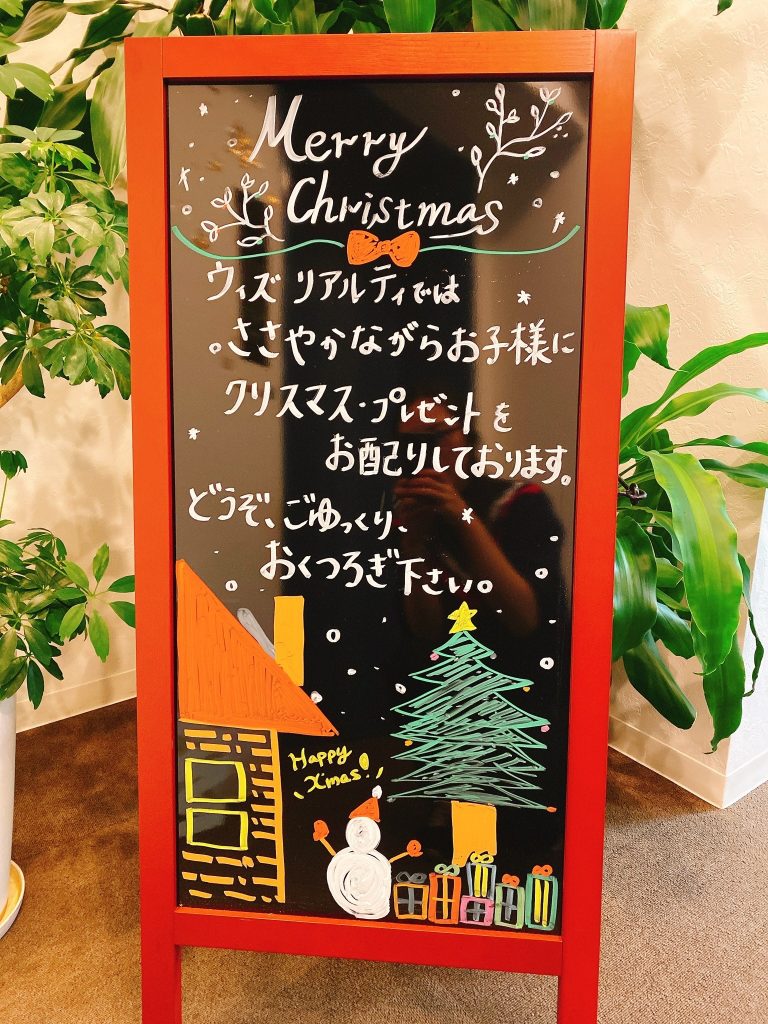 Merry
Christmas
ウィズ リアルティでは
ささやかながらお子様に
クリスマス・プレゼントを
お配りしております。
どうぞ、ごゆっくり、
おくつろぎ下さい。
Happy
X'mas!